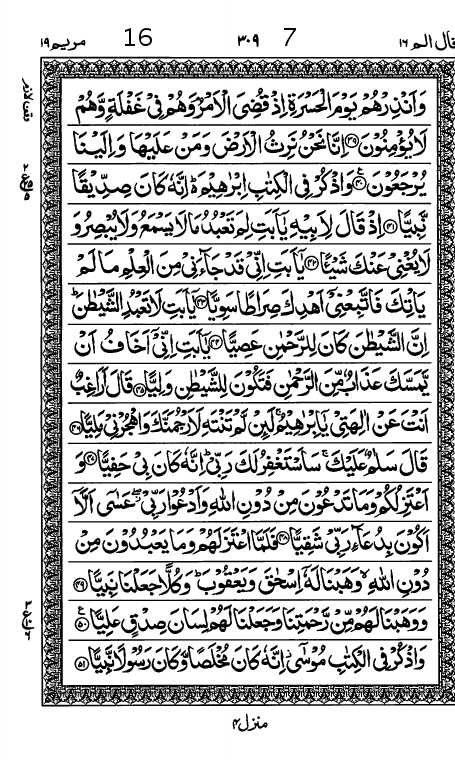 قال الم ۱۶ 7 ۳۰۹ 16 مریم ۱۹
وَاَنْذِرْهُمْ يَوْمَ الْحَسْرَةِ اِذْ قُضِيَ الْاَمْرُ وَهُمْ فِيْ غَفْلَةٍ وَّهُمْ
لَا يُؤْمِنُوْنَ ﴿۳۹﴾ اِنَّا نَحْنُ نَرِثُ الْاَرْضَ وَمَنْ عَلَيْهَا وَاِلَيْنَا
يُرْجَعُوْنَ ﴿۴۰﴾ وَاذْكُرْ فِي الْكِتٰبِ اِبْرٰهِيْمَ ۬ؕ اِنَّهٗ كَانَ صِدِّيْقًا
نَّبِيًّا ﴿۴۱﴾ اِذْ قَالَ لِاَبِيْهِ يٰۤاَبَتِ لِمَ تَعْبُدُ مَا لَا يَسْمَعُ وَلَا يُبْصِرُ وَ
لَا يُغْنِيْ عَنْكَ شَيْـًٔا ﴿۴۲﴾ يٰۤاَبَتِ اِنِّيْ قَدْ جَآءَنِيْ مِنَ الْعِلْمِ مَا لَمْ
يَاْتِكَ فَاتَّبِعْنِيْۤ اَهْدِكَ صِرَاطًا سَوِيًّا ﴿۴۳﴾ يٰۤاَبَتِ لَا تَعْبُدِ الشَّيْطٰنَ ؕ
اِنَّ الشَّيْطٰنَ كَانَ لِلرَّحْمٰنِ عَصِيًّا ﴿۴۴﴾ يٰۤاَبَتِ اِنِّيْۤ اَخَافُ اَنْ
يَّمَسَّكَ عَذَابٌ مِّنَ الرَّحْمٰنِ فَتَكُوْنَ لِلشَّيْطٰنِ وَلِيًّا ﴿۴۵﴾ قَالَ اَرَاغِبٌ
اَنْتَ عَنْ اٰلِهَتِيْ يٰۤاِبْرٰهِيْمُ ۚ لَىِٕنْ لَّمْ تَنْتَهِ لَاَرْجُمَنَّكَ وَاهْجُرْنِيْ مَلِيًّا ﴿۴۶﴾
قَالَ سَلٰمٌ عَلَيْكَ ۚ سَاَسْتَغْفِرُ لَكَ رَبِّيْ ؕ اِنَّهٗ كَانَ بِيْ حَفِيًّا ﴿۴۷﴾ وَ
اَعْتَزِلُكُمْ وَمَا تَدْعُوْنَ مِنْ دُوْنِ اللّٰهِ وَاَدْعُوْا رَبِّيْ ۖؗ عَسٰۤى اَلَّاۤ
اَكُوْنَ بِدُعَآءِ رَبِّيْ شَقِيًّا ﴿۴۸﴾ فَلَمَّا اعْتَزَلَهُمْ وَمَا يَعْبُدُوْنَ مِنْ
دُوْنِ اللّٰهِ ۙ وَهَبْنَا لَهٗۤ اِسْحٰقَ وَيَعْقُوْبَ ؕ وَكُلًّا جَعَلْنَا نَبِيًّا ﴿۴۹﴾
وَوَهَبْنَا لَهُمْ مِّنْ رَّحْمَتِنَا وَجَعَلْنَا لَهُمْ لِسَانَ صِدْقٍ عَلِيًّا ﴿۵۰﴾ ع
وَاذْكُرْ فِي الْكِتٰبِ مُوْسٰۤى ؗ اِنَّهٗ كَانَ مُخْلَصًا وَّكَانَ رَسُوْلًا نَّبِيًّا ﴿۵۱﴾
منزل ۴